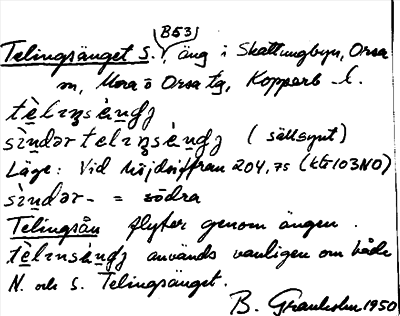 B53
Telingsänget S., äng i Skattungbyn, Orsa
sn, Mora o Orsa tg, Kopparb. l.
tèlɪŋsèŋgɟ
sìndər telɪŋsèŋgɟ (sällsynt)
Läge: Vid höjdsiffran 204,75 (kbl 103NO)
sìndər- = södra
Telingsån flyter genom ängen.
tèlɪnsèŋgɟ används vanligen om både
N. och S. Telingsänget.
B. Granholm 1950